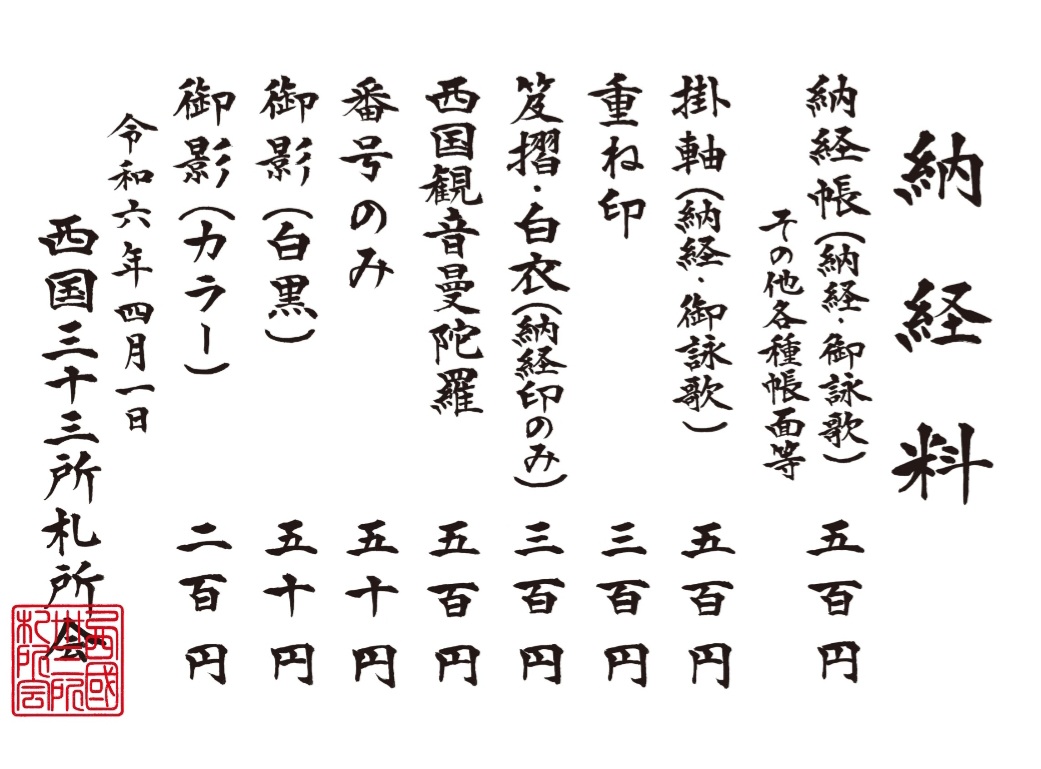 納経料
納経帳(納経・御詠歌) 五百円
その他各種帳面等
掛軸(納経・御詠歌) 五百円
重ね印 三百円
笈摺・白衣(納経印のみ) 三百円
西国観音曼陀羅 五百円
番号のみ 五十円
御影(白黒) 五十円
御影(カラー) 二百円
令和六年四月一日
西国三十三所札所会
西國
卅三所
札所会